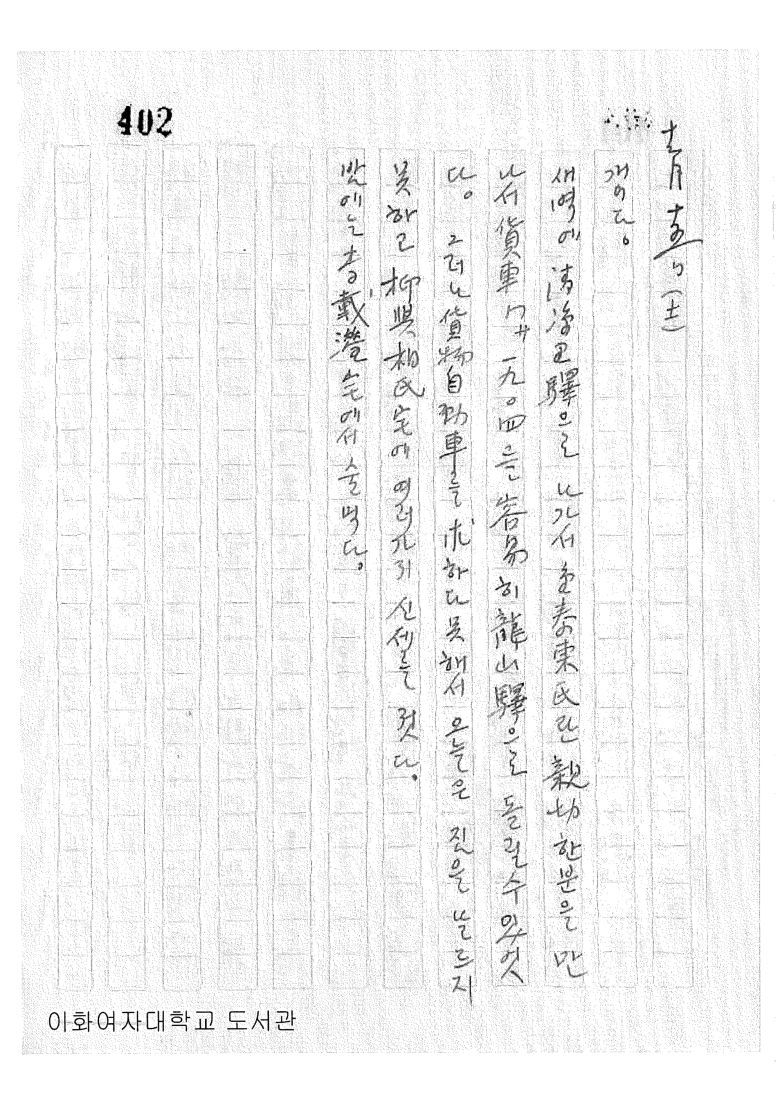 402
十一月 日 (土)
개이다。
새벽에 淸凉里驛으로 나가서 金泰東氏란 親切한분을 만
나서 貨車 ワ 一九〇四를 容易히 龍山驛으로 돌릴수 있엇
다。 그러나 貨物自動車를 求하다 못해서 오늘은 짐을 날르지
못하고 柳興相氏宅에 여러가지 신세를 젓다。
밤에는 李載瀅宅에서 술먹다。
이화여자대학교 도서관